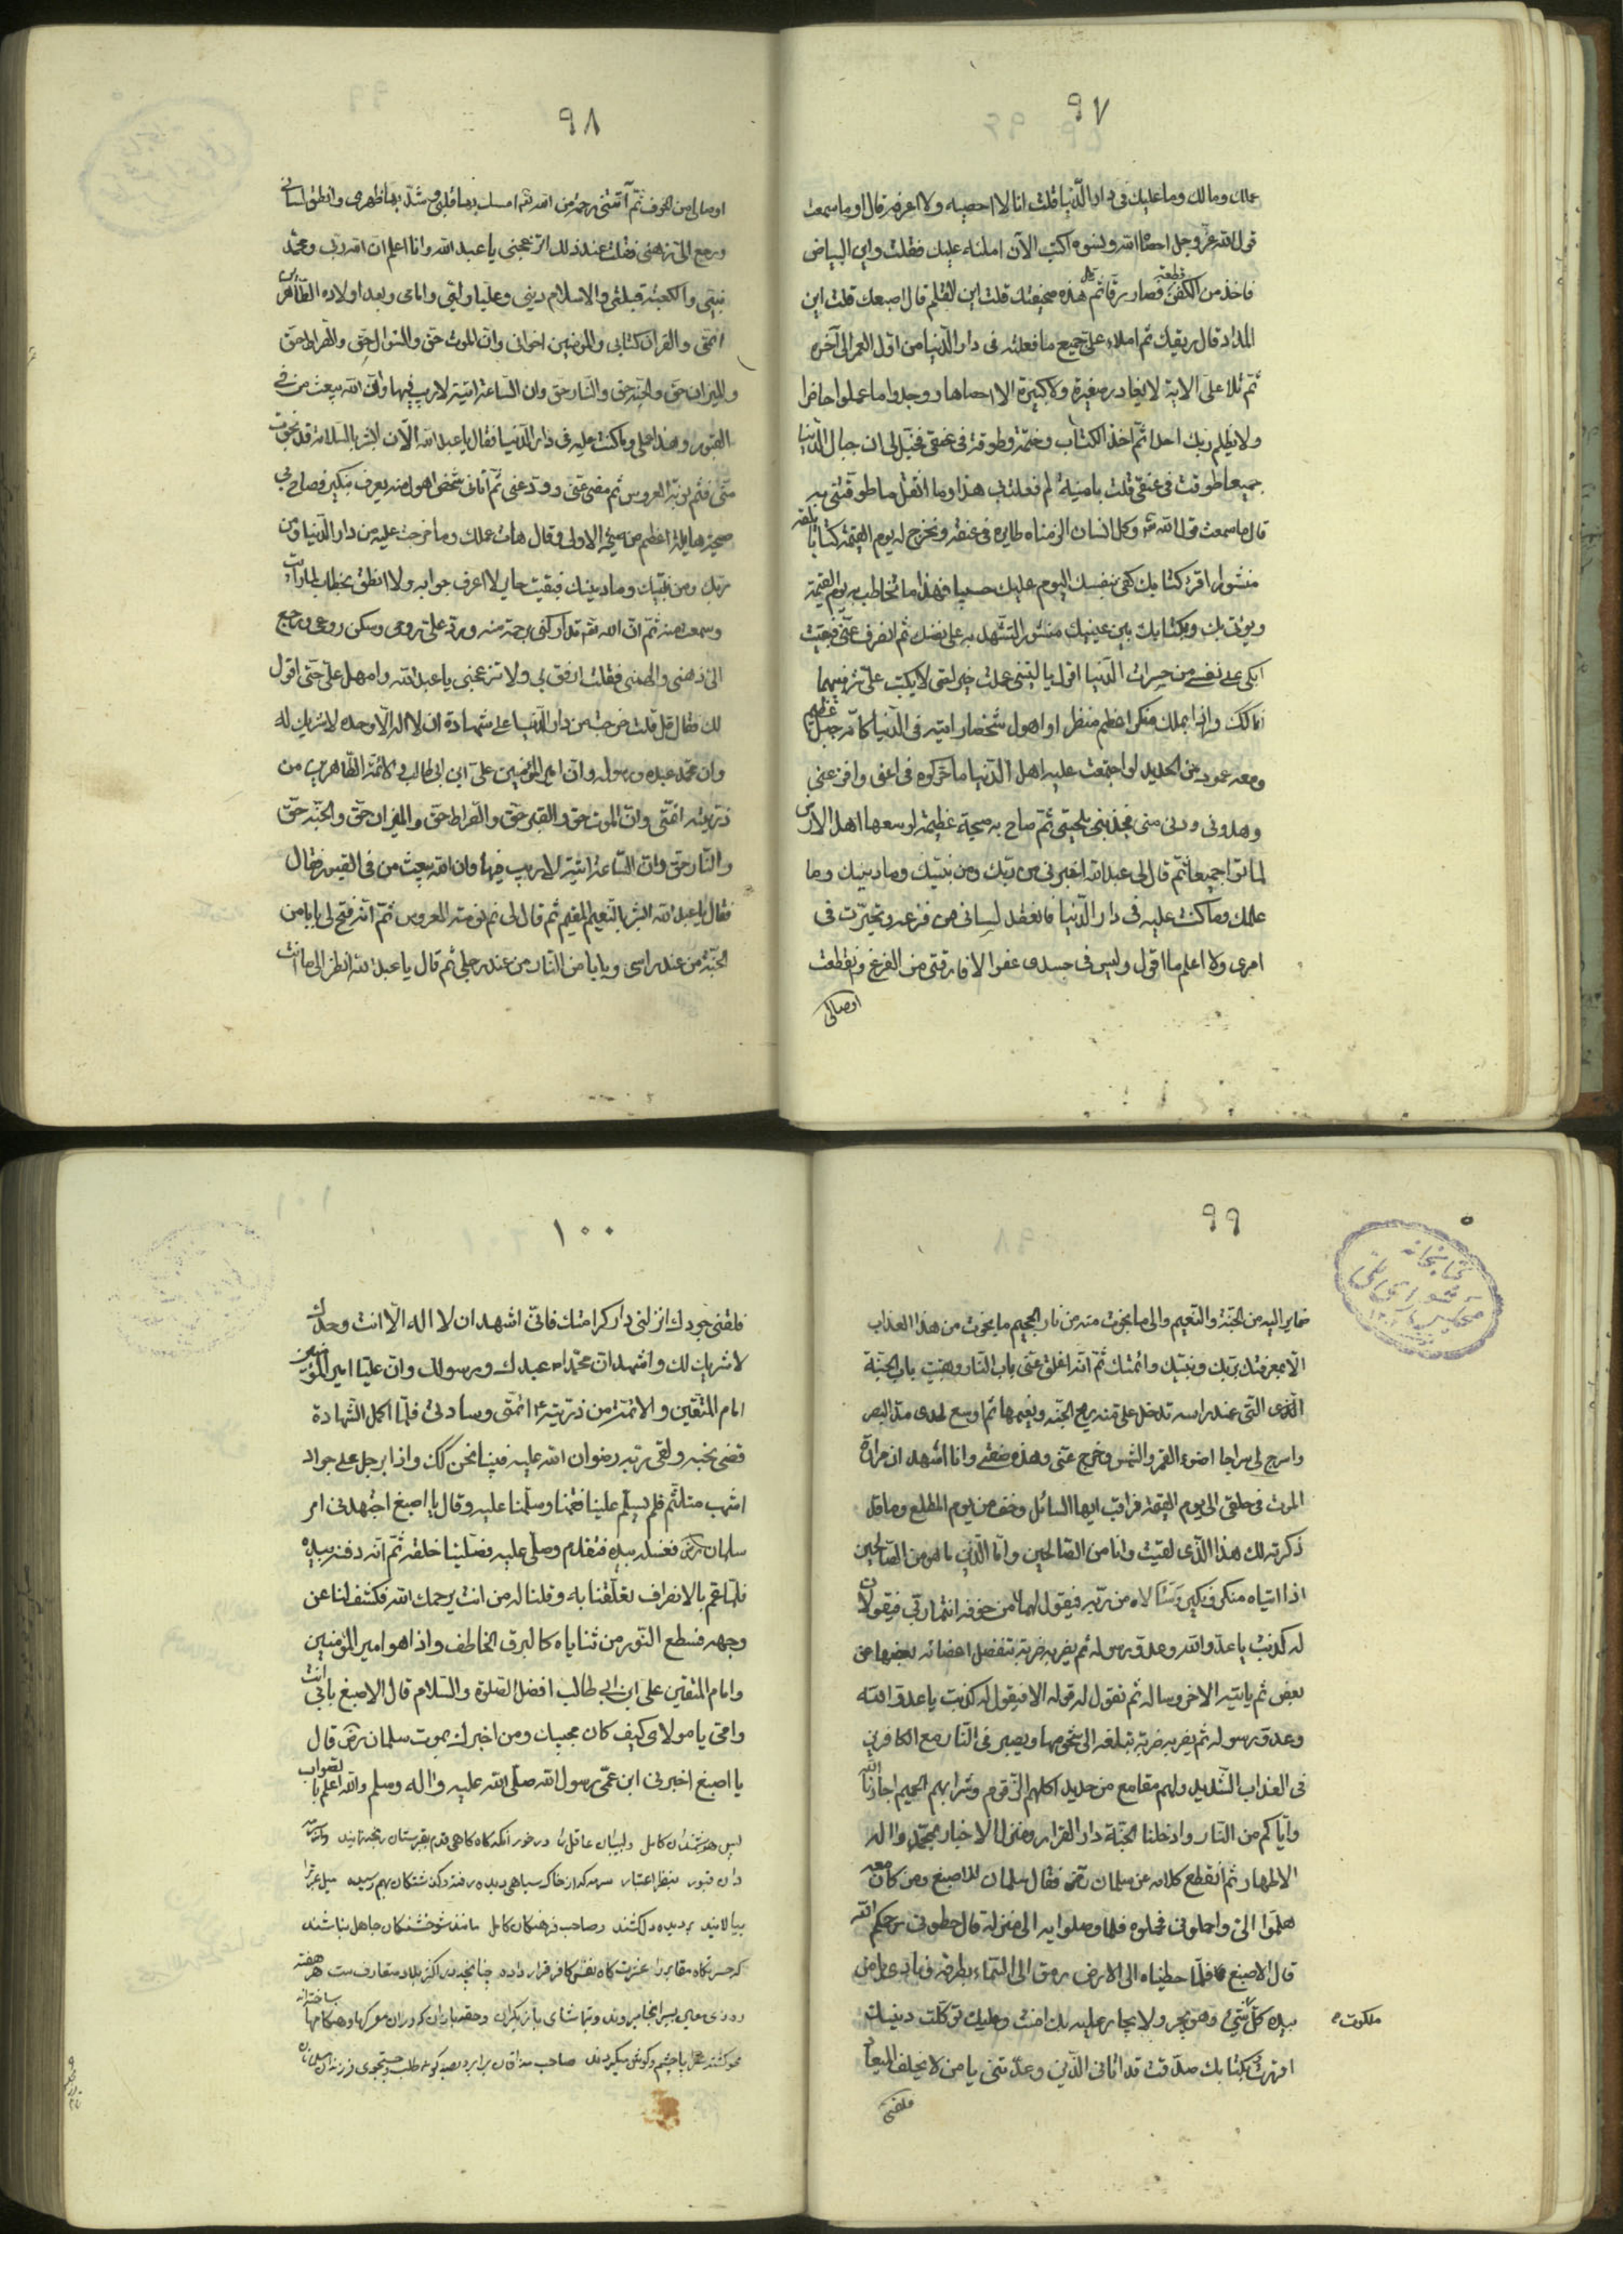 ٩٧
عملك ومالك وما عليك فى دار الدّنيا قلت انا لا احصيه ولا اعرفه قال او ما سمعت
قول الله عزّ وجل احصاه الله ونسوه اكتب الآن املئه عليك فقلت واين البياض
فاخذ من الكفن قطعة فصار رقّا ثم قال هذه صحيفتك قلت اين القلم قال اصبعك قلت اين
المداد قال ريقك ثم املاء علىّ جميع ما فعلته فى دار الدّنيا من اوّل العمر الى آخره
ثمّ تلا علىّ الاية لا يغادر صغيرة ولا كبيرة الا احصاها ووجدوا ما عملوا حاضرا
ولا يظلم ربك احدا ثمّ اخذ الكتاب وختمه وطوقه فى عنقى فخيّل لى ان جبال الدّنيا
جميعا طوقت فى عنقى قلت يا منبه لم فعلت بى هذا وما اثقل ما طوقتنى به
قال ما سمعت قول الله وكل انسان الزمناه طايره فى عنقه ونخرج له يوم القيمة كتابا يلقيه
منشورا اقرء كتابك كفى بنفسك اليوم عليك حسيبا فهذا ما تخاطب به يوم القيمة
ويؤتى بك وبكتابك بين عينيك منشورا لتشهد به على نفسك ثم انصرف عنّى فبقيت
ابكى على نفسى من حسرات الدّنيا اقول يا ليتنى عملت خيرا لتى لا يكتب علىّ شر فبينما
انا كك واذا بملك منكر اعظم منظرا او اهول شخصا رايته فى الدّنيا كانّه جبل عظيم
ومعه عمود من الحديد لو اجتمعت عليه اهل الدّنيا ما حركوه فى اعنى وافزعنى
وهدونى ودنى منى فجذبنى بلحيتى ثمّ صاح بى صيحة عظيمة لو سمعها اهل الارض
لماتوا جميعا ثمّ قال لى عبد الله اخبرنى من ربّك ومن نبيّك وما دينك وما
عملك وما كنت عليه فى دار الدّنيا فانعقد لسانى من فزعه وتحيّرت فى
امرى ولا اعلم ما اقول وليس فى جسدى عضوا الا فارقتى من الفزع وتقطعت
اوصالى
٩٨
اوصالى من الخوف ثمّ آتتنى رحمة من الله تعم امسك بها قلبى وشدّ بها ظهرى وانطق لسانى
ورجع الىّ ذهنى فقلت عند ذلك اتزعجنى يا عبد الله وانا اعلم ان الله ربّى ومحمّد
نبيّى والكعبة قبلتى والاسلام دينى وعليّا وليّى وامامى وبعد اولاده الطّاهرين
ائمّتى والقران كتابى والمؤمنين اخوانى وانّ الموت حق والسّؤال حق والصّراط حق
والميزان حق والجنّة حق والنّار حق وان السّاعة اتية لا ريب فيها وانّ الله يبعث من فى
القبور وهذا عملى وما كنت عليه فى دار الدّنيا فقال يا عبد الله الآن ابشر بالسلامة قد نجوت
منّى فنم نومة العروس ثم مضى عنّى وودعنى ثمّ اتانى شخص اهول منه يعرف بنكير فصاح بى
صيحة هايلة اعظم من صيحة الاولى وقال هات عملك وما خرجت عليه من دار الدّنيا ومن
ربك ومن نبيّك وما دينك فبقيت حايرا لا اعرف جوابه ولا انطق بخطاب لما رايت
وسمعت منه ثمّ انّ الله تقم تداركنى برحمة منه وردّ علىّ روحى وسكن روعى ورجع
الىّ ذهنى والهمنى فقلت ارفق بى ولا تزعجنى يا عبد الله وامهل علىّ حتّى اقول
لك فقال قل قلت خرجت من دار الدّنيا على شهادة ان لا اله الّا الله وحده لا شريك له
وان محمّد عبده ورسوله وان امير المؤمنين علىّ ابن ابى طالب والائمّة الطّاهرين من
ذرّيته ائمّتى وانّ الموت حق والقبر حق والصّراط حق والميزان حق والجنّة حق
والنّار حق وان السّاعة اتية لا ريب فيها وان الله يبعث من فى القبور فقال
فقال يا عبد الله ابشر بالنّعيم المقيم ثم قال لى نم نومة العروس ثمّ انّه فتح لى بابا من
الجنّة من عند راسى وبابا من النّار من عند رجلى ثم قال يا عبد الله انظر الى ما انت
٩٩
صاير اليه من الجنّة والنّعيم والى ما نجوت منه من نار الجحيم ما نجوت من هذا العذاب
الّا بمعرفتك بربّك ونبيّك وائمّتك ثمّ انّه اغلق عنّى باب النّار وبقيت باب الجنّة
الّذى التّى عند راسه تدخل علىّ منه ريح الجنّة ونعيمها ثم اوسع لحدى مدّ البصر
واسرج لى سراجا اضوء القمر والشّمس وخرج عنّى وهذه صفتى وانا اشهد ان مرارة
الموت فى حلقى الى يوم القيمة فراقب ايها السائل وخف من يوم المطلع وما قد
ذكرته لك هذا الّذى لقيت وانا من الصّالحين وامّا الّذين ما هو من الصّالحين
اذا اتياه منكر ونكير وسالاه من ربّه فيقول لهما من خوفه انتما ربّى فيقولان
له كذبت يا عدوّ الله وعدوّ رسوله ثم يضربه ضربة تنفصل اعضائه بعضها من
بعض ثم ياتيه الاخر وساله ثم تقول له قوله الا فيقول له كذبت يا عدوّ الله
وعدوّ رسوله ثم يضربه ضربة تبلغه الى تخومها ويصير فى النّار مع الكافرين
فى العذاب الشّديد ولهم مقامع من حديد اكلهم الزّقوم وشرابهم الحميم اجارنا الله
وايّاكم من النّار وادخلنا الجنّة دار القرار ومنزل الاخيار بمحمّد واله
الاطهار ثم انقطع كلامه عن سلمان رض فقال سلمان للاصبغ ومن كان معه
هلمّوا الىّ واحملونى فحملوه فلمّا وصلوا به الى منزله قال حطونى رحمكم الله
قال الاصبغ فلمّا حطيناه الى الارض رمق الى السّماء بطرفه ونادى يا من
بيده ملكوت كلّ شىء وهو يجير ولا يجار عليه بك امنت وعليك توكّلت دينيك
اقررت بكتابك صدّقت قد اتانى الّذين وعدّتنى يا من لا يخلف الميعاد
فلقنى
١٠٠
فلقنى جودك انزلنى دار كرامتك فانّى اشهد ان لا اله الّا انت وحدك
لا شريك لك واشهد ان محمّدا عبدك ورسولك وان عليّا امير المؤمنين
امام المتّقين والائمّة من ذرّيته ائمّتى وسادتى فلمّا اكمل الشّهادة
قضى نحبه ولقى ربّه رضوان الله عليه فبينا نحن كك واذا برجل على جواد
اشهب متلثّم فلم يسلّم علينا فقمنا وسلّمنا عليه وقال يا اصبغ اجتهد فى امر
سلمان رض فغسله بيده فتقدم وصلّى عليه فصلّينا خلفه ثمّ انّه دفنه بيده
فلمّا هم بالانصراف تعلّقنا به وقلنا له من انت يرحمك الله فكشف لنا عن
وجهه فسطع النّور من ثناياه كالبرق الخاطف واذا هو امير المؤمنين
وامام المتّقين على ابن ابى طالب افضل الصّلوة والسّلام قال الاصبغ بابى انت
وامّى يا مولاى كيف كان مجيئك ومن اخبرك بموت سلمان رض قال
يا اصبغ اخبرنى ابن عمّى رسول الله صلّى الله عليه واله وسلم والله اعلم بالصّواب
پس هوشمندان كامل ولبيبان عاقل را در خور آنكه گاه گاهى قدم بقبرستان رنجه نمايند
دران قبور بنظر اعتبار سرمه كه از خاك سياهى ديده رفته و گذشتگان بهم رسيده ميل عبرترا
بيالايند بر ديده دل كشند وصاحب فرهنگان كامل مانند جاهل نباشند
كه حسرتگاه مقابر را عشرتگاه نفس كافر قرار داده چنانچه در اكثر بلاد متعارفست هر هفته
محو گشته صاحب مذاقان برابر بصد گونه طلب وجستجوى فرزندان
كتابخانه
مجلس شوراى ملى